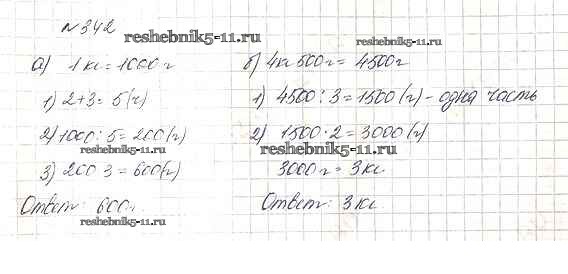 №342
reshebnik5-11.ru
а) 1 кг = 1000 г
1) 2+3= 5(ч)
2) 1000 : 5 = 200 (г)
reshebnik5-11.ru
3) 200 3 = 600(г)
Ответ: 600г.
reshebnik5-11.ru
б) 4кг 500г = 4500г
reshebnik5-11.ru
1) 4500 : 3 = 1500 (г) - одна часть
2) 1500 · 2 = 3000 (г)
reshebnik5-11.ru
3000г = 3кг
Ответ: 3кг